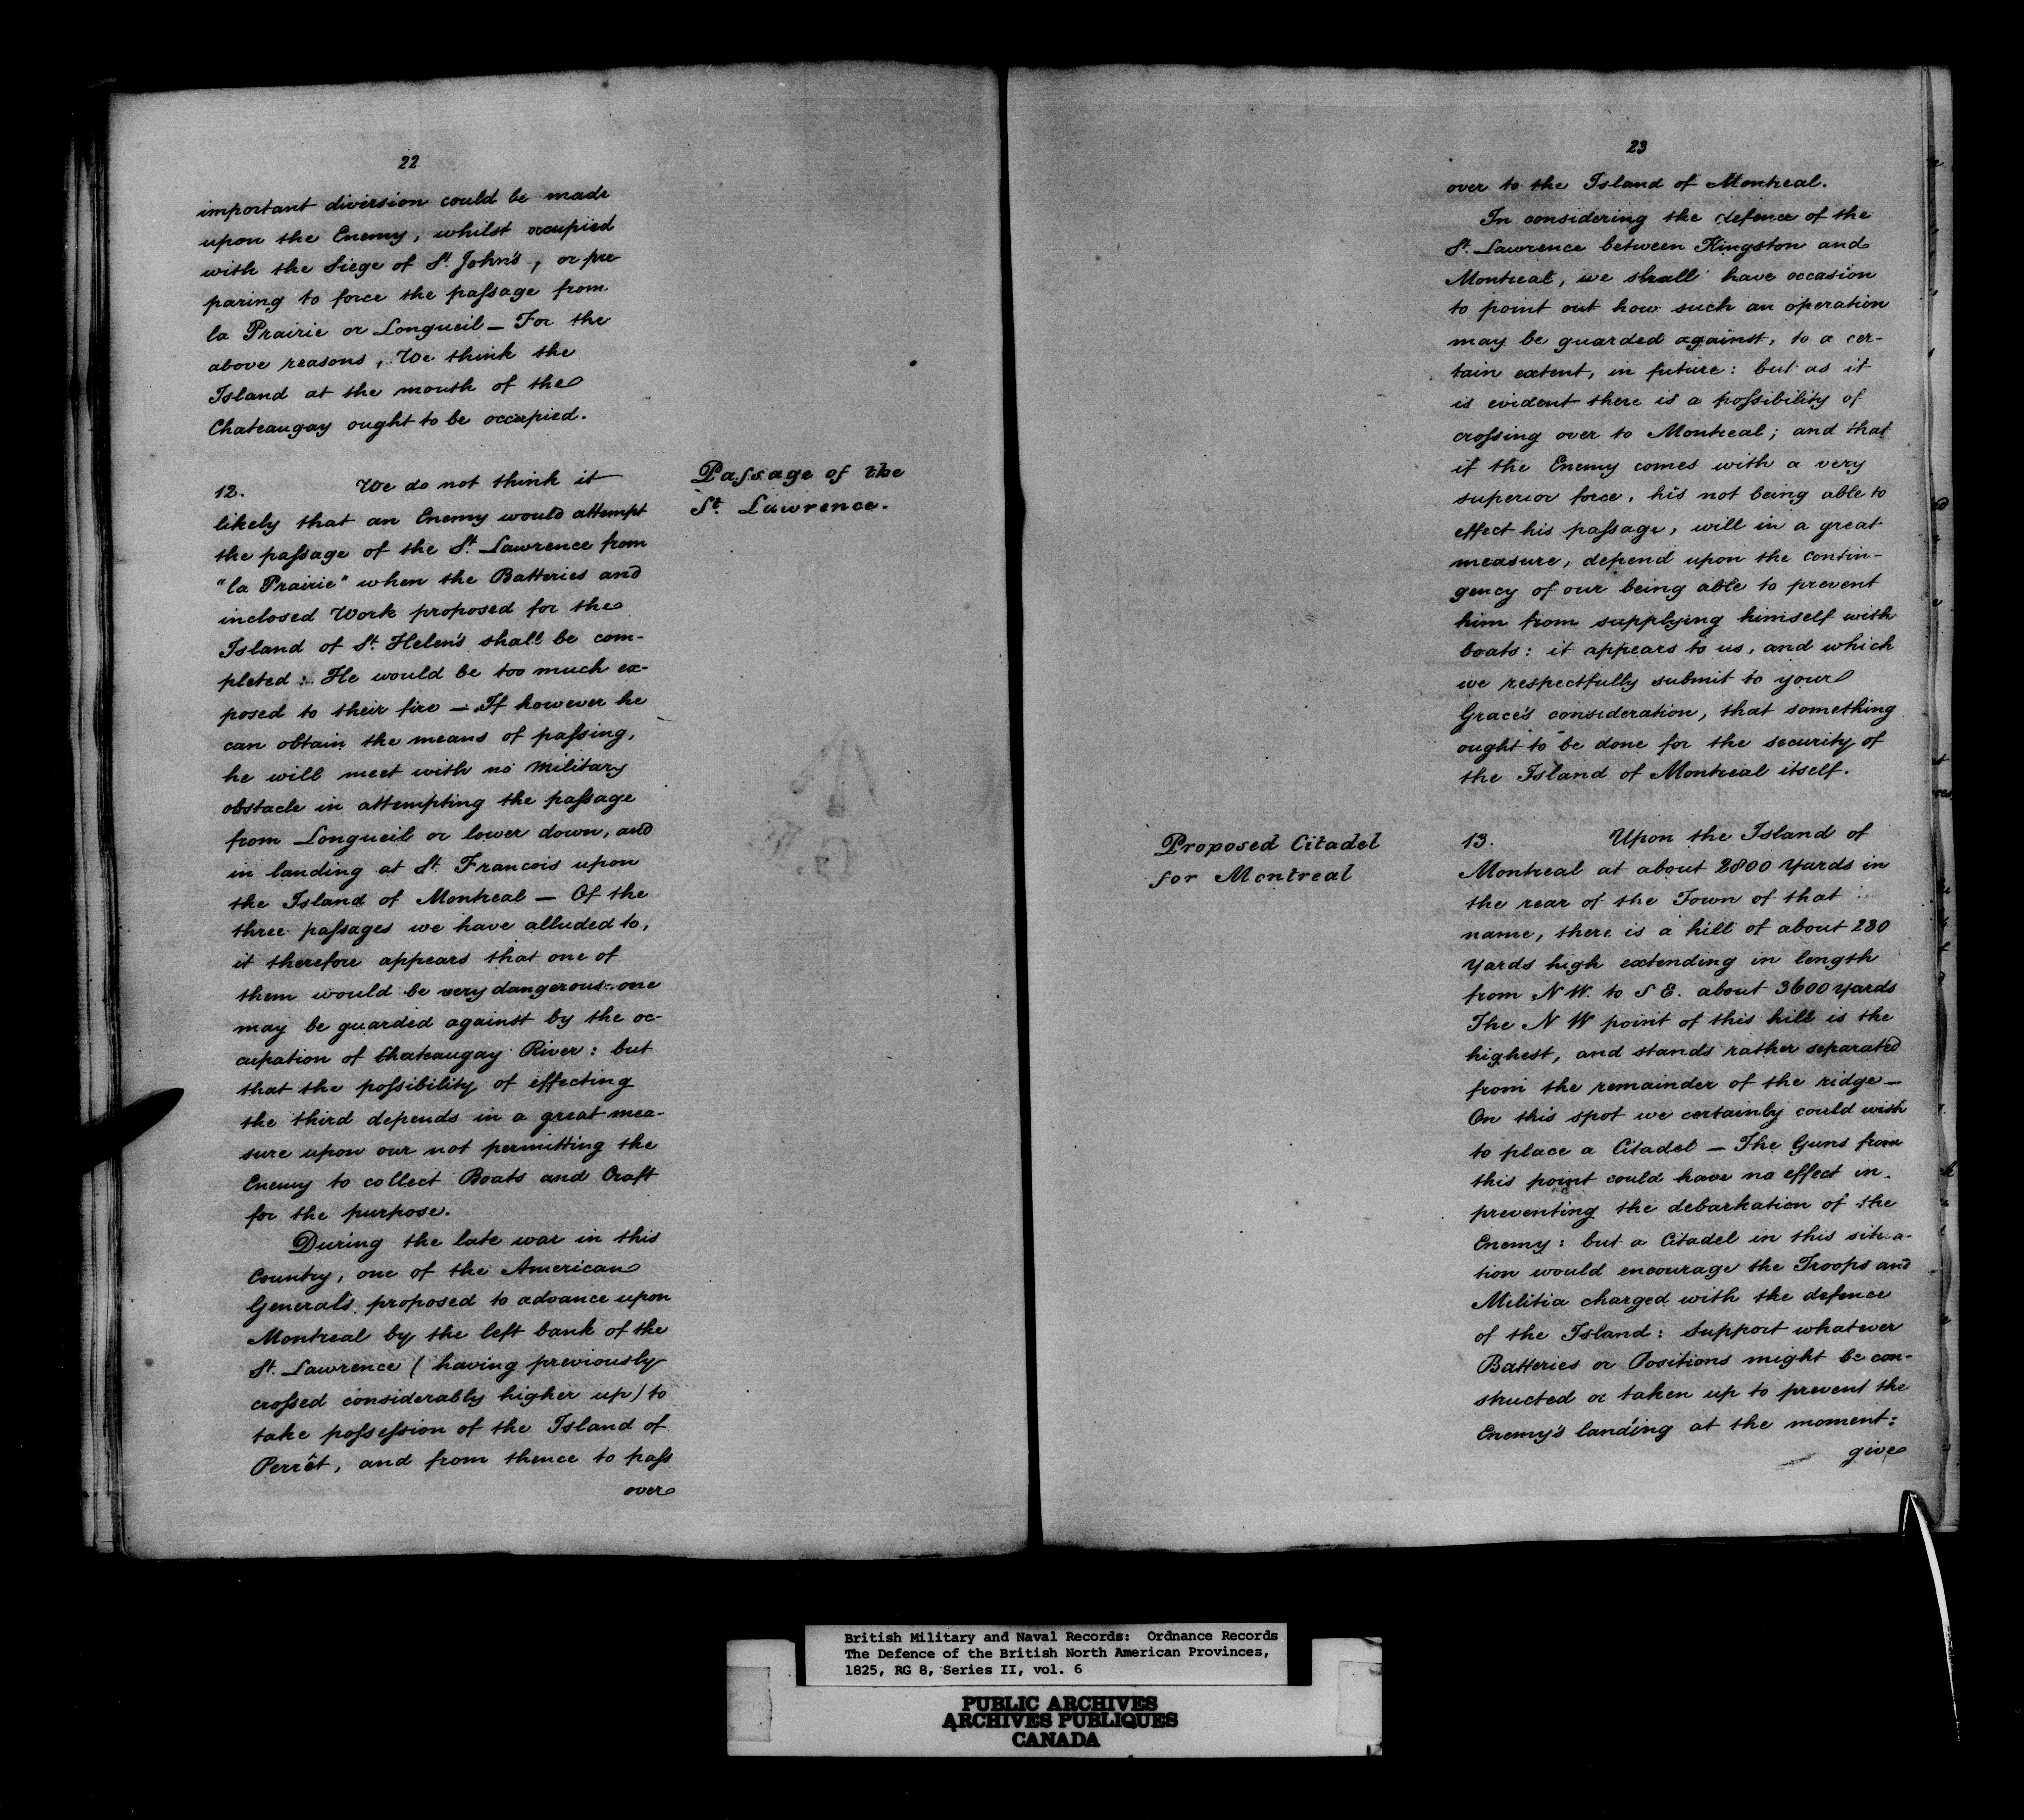 22
important diversion could be made
upon the Enemy, whilst occupied
with the Siege of St. John's, or pre-
paring to force the passage from
la Prairie or Longueil — For the
above reasons, We think the
Island at the mouth of the
Chateaugay ought to be occupied.
Passage of the
St. Lawrence.
12. We do not think it
likely that an Enemy would attempt
the passage of the St. Lawrence from
"la Prairie" when the Batteries and
inclosed Work proposed for the
Island of St. Helen's shall be com-
pleted: He would be too much ex-
posed to their fire — If however he
can obtain the means of passing,
he will meet with no Military
obstacle in attempting the passage
from Longueil or lower down, and
in landing at St. Francois upon
the Island of Montreal — Of the
three passages we have alluded to,
it therefore appears that one of
them would be very dangerous: one
may be guarded against by the oc-
cupation of Chateaugay River: but
that the possibility of effecting
the third depends in a great mea-
sure upon our not permitting the
Enemy to collect Boats and Craft
for the purpose.
During the late war in this
Country, one of the American
Generals proposed to advance upon
Montreal by the left bank of the
St. Lawrence (having previously
crossed considerably higher up) to
take possession of the Island of
Perrêt, and from thence to pass
over
23
over to the Island of Montreal.
In considering the defence of the
St. Lawrence between Kingston and
Montreal, we shall have occasion
to point out how such an operation
may be guarded against, to a cer-
tain extent, in future: but as it
is evident there is a possibility of
crossing over to Montreal; and that
if the Enemy comes with a very
superior force, his not being able to
effect his passage, will in a great
measure, depend upon the contin-
gency of our being able to prevent
him from supplying himself with
boats: it appears to us, and which
we respectfully submit to your
Grace's consideration, that something
ought to be done for the security of
the Island of Montreal itself.
Proposed Citadel
for Montreal
13. Upon the Island of
Montreal at about 2800 Yards in
the rear of the Town of that
name, there is a hill of about 230
Yards high extending in length
from N W. to S E. about 3600 yards
The N W point of this hill is the
highest, and stands rather separated
from the remainder of the ridge —
On this spot we certainly could wish
to place a Citadel — The Guns from
this point could have no effect in
preventing the debarkation of the
Enemy: but a Citadel in this situa-
tion would encourage the Troops and
Militia charged with the defence
of the Island: Support whatever
Batteries or Positions might be con-
structed or taken up to prevent the
Enemy's landing at the moment:
give
British Military and Naval Records: Ordnance Records
The Defence of the British North American Provinces,
1825, RG 8, Series II, vol. 6
PUBLIC ARCHIVES
ARCHIVES PUBLIQUES
CANADA